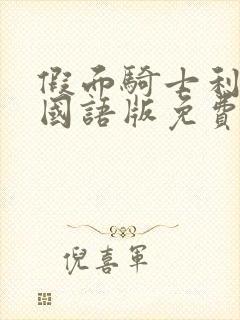 假面騎士利
國語版免費
倪喜軍